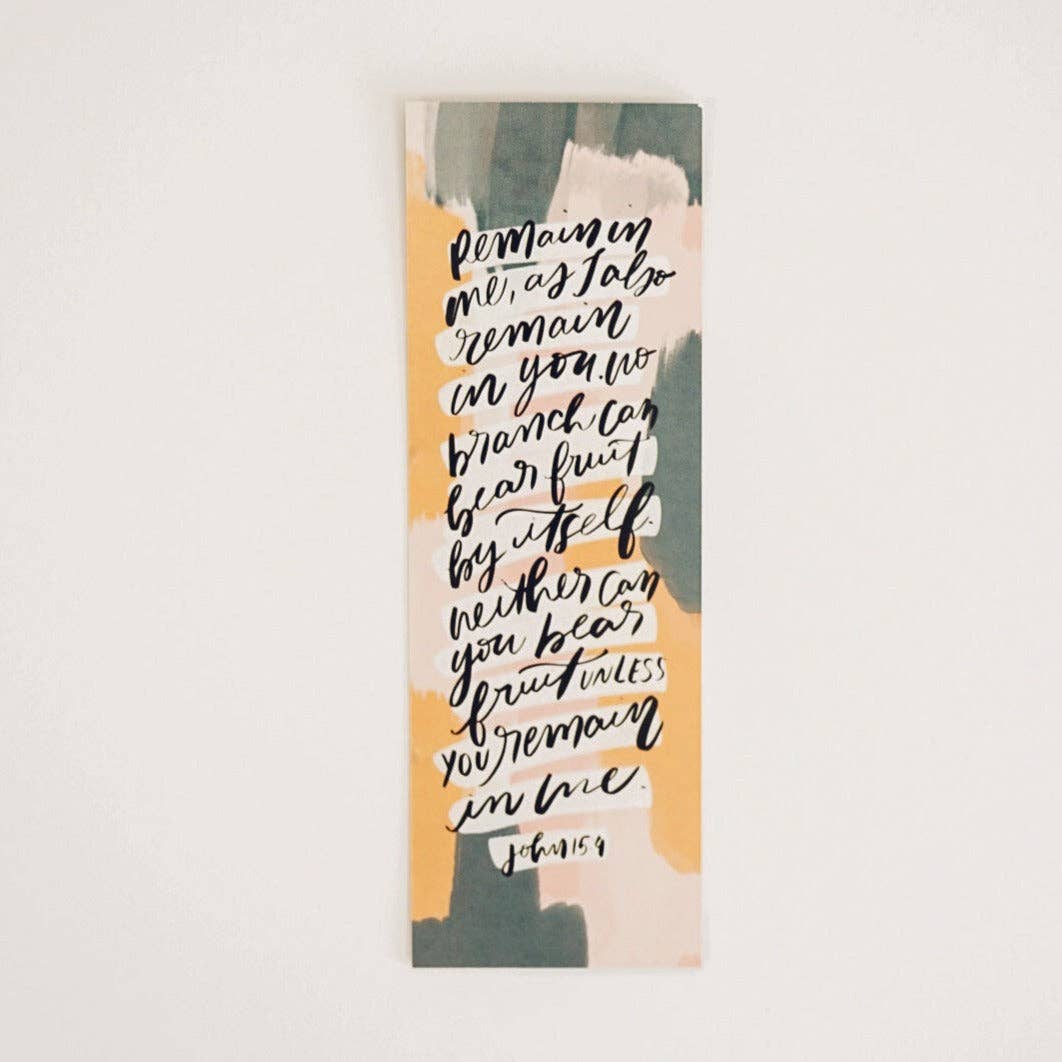 Remain in
me, as I also
remain
in you. no
branch can
bear fruit
by itself.
neither can
you bear
fruit UNLESS
YOU remain
in me.
John 15 4